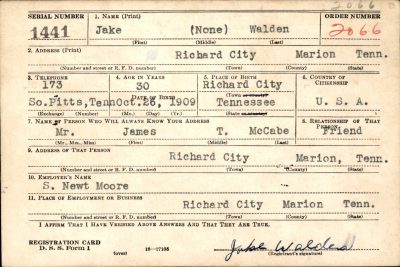 2066
SERIAL NUMBER 1. NAME (Print) ORDER NUMBER
1441 Jake (None) Walden 2066
(First) (Middle) (Last)
2. ADDRESS (Print)
Richard City Marion Tenn.
(Number and street or R. F. D. number) (Town) (County) (State)
3. TELEPHONE 4. AGE IN YEARS 5. PLACE OF BIRTH 6. COUNTRY OF CITIZENSHIP
173 30 Richard City
DATE OF BIRTH (Town or county)
So.Pitts,Tenn Oct.26, 1909 Tennessee U. S. A.
(Exchange) (Number) (Mo.) (Day) (Yr.) (State or country)
7. NAME OF PERSON WHO WILL ALWAYS KNOW YOUR ADDRESS 8. RELATIONSHIP OF THAT PERSON
Mr. James T. McCabe Friend
(Mr., Mrs., Miss) (First) (Middle) (Last)
9. ADDRESS OF THAT PERSON
Richard City Marion, Tenn.
(Number and street or R. F. D. number) (Town) (County) (State)
10. EMPLOYER'S NAME
S. Newt Moore
11. PLACE OF EMPLOYMENT OR BUSINESS
Richard City Marion Tenn.
(Number and street or R. F. D. number) (Town) (County) (State)
I AFFIRM THAT I HAVE VERIFIED ABOVE ANSWERS AND THAT THEY ARE TRUE.
REGISTRATION CARD
D. S. S. Form 1 16—17105 Jake Walden
(over) (Registrant's signature)